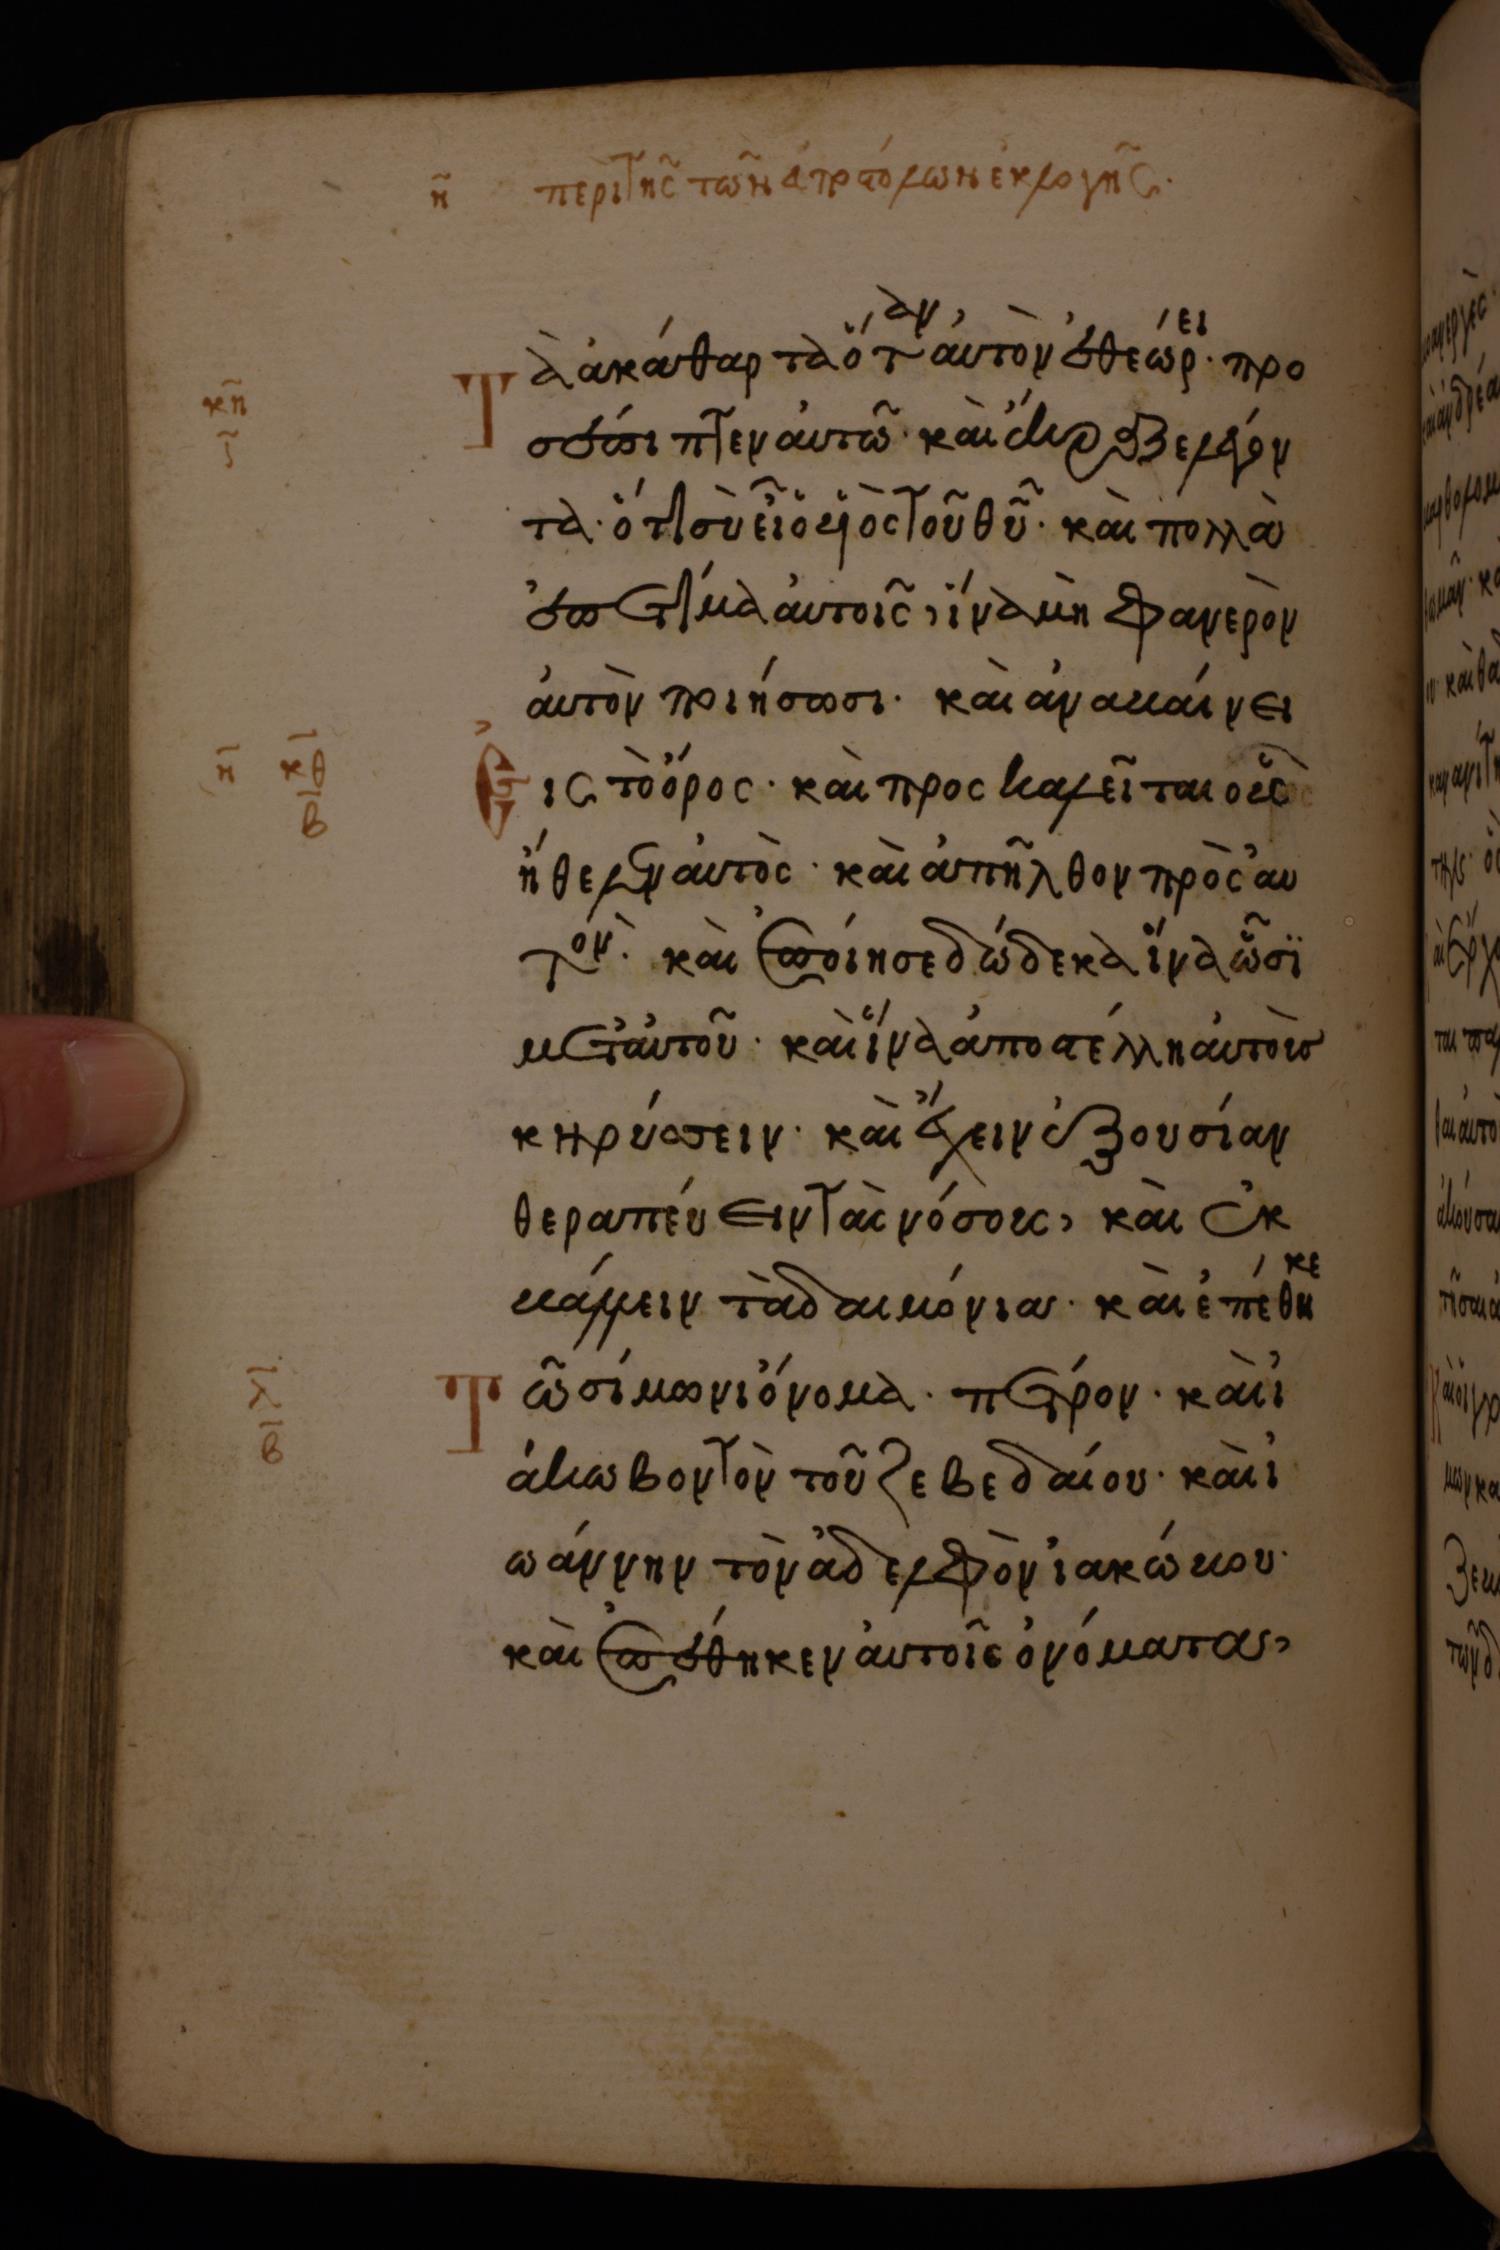 η̃ περὶ τῆς τῶν ἀποστόλων ἐκλογῆς.
Τὰ ἀκάθαρτα ὅταν αὐτὸν ἐθεώρει· προ
σέπιπτεν αὐτῶ· καὶ ἔκραζε λέγον
τα· ὅτι σὺ εἶ ὁ υἱὸς τοῦ θῦ· καὶ πολλὰ
ἐπετίμα αὐτοῖς, ἵνα μὴ φανερὸν
κη
αὐτὸν ποιήσωσι· καὶ ἀναβαίνει
η κθ β
Εἰς τὸ ὄρος· καὶ προσκαλεῖται οὓς
ἤθελεν αὐτὸς· καὶ ἀπῆλθον πρὸς αυ
τὸν· καὶ ἐποίησε δώδεκα ἵνα ὦσϊ
μετ' αὐτοῦ· καὶ ἵνα ἀποστέλλη αὐτοὺσ
κηρύσσειν· καὶ ἔχειν ἐξουσίαν
θεραπεύειν τὰς νόσους, καὶ ἐκ
βάλλειν τὰ δαιμόνια· καὶ ἐπέθηκε
λ β
Τῶ σίμωνι ὄνομα· πέτρον· καὶ ἰ
άκωβον τὸν τοῦ ζεβεδαίου· καὶ ἰ
ωάννην τὸν ἀδελφὸν ἰακώβου·
καὶ ἐπέθηκεν αὐτοῖς ὀνόματα,